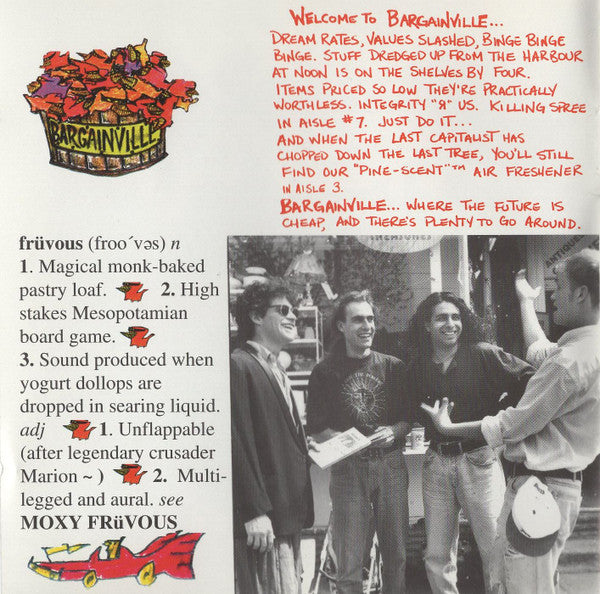 BARGAINVILLE
WELCOME TO BARGAINVILLE...
DREAM RATES, VALUES SLASHED, BINGE BINGE
BINGE. STUFF DREDGED UP FROM THE HARBOUR
AT NOON IS ON THE SHELVES BY FOUR.
ITEMS PRICED SO LOW THEY'RE PRACTICALLY
WORTHLESS. INTEGRITY "Я" US. KILLING SPREE
IN AISLE #7. JUST DO IT...
AND WHEN THE LAST CAPITALIST HAS
CHOPPED DOWN THE LAST TREE, YOU'LL STILL
FIND OUR "PINE-SCENT"™ AIR FRESHENER
IN AISLE 3.
BARGAINVILLE... WHERE THE FUTURE IS
CHEAP, AND THERE'S PLENTY TO GO AROUND.
früvous (froo´vəs) n
1. Magical monk-baked
pastry loaf. 2. High
stakes Mesopotamian
board game.
3. Sound produced when
yogurt dollops are
dropped in searing liquid.
adj 1. Unflappable
(after legendary crusader
Marion ~ ) 2. Multi-
legged and aural. see
MOXY FRüVOUS